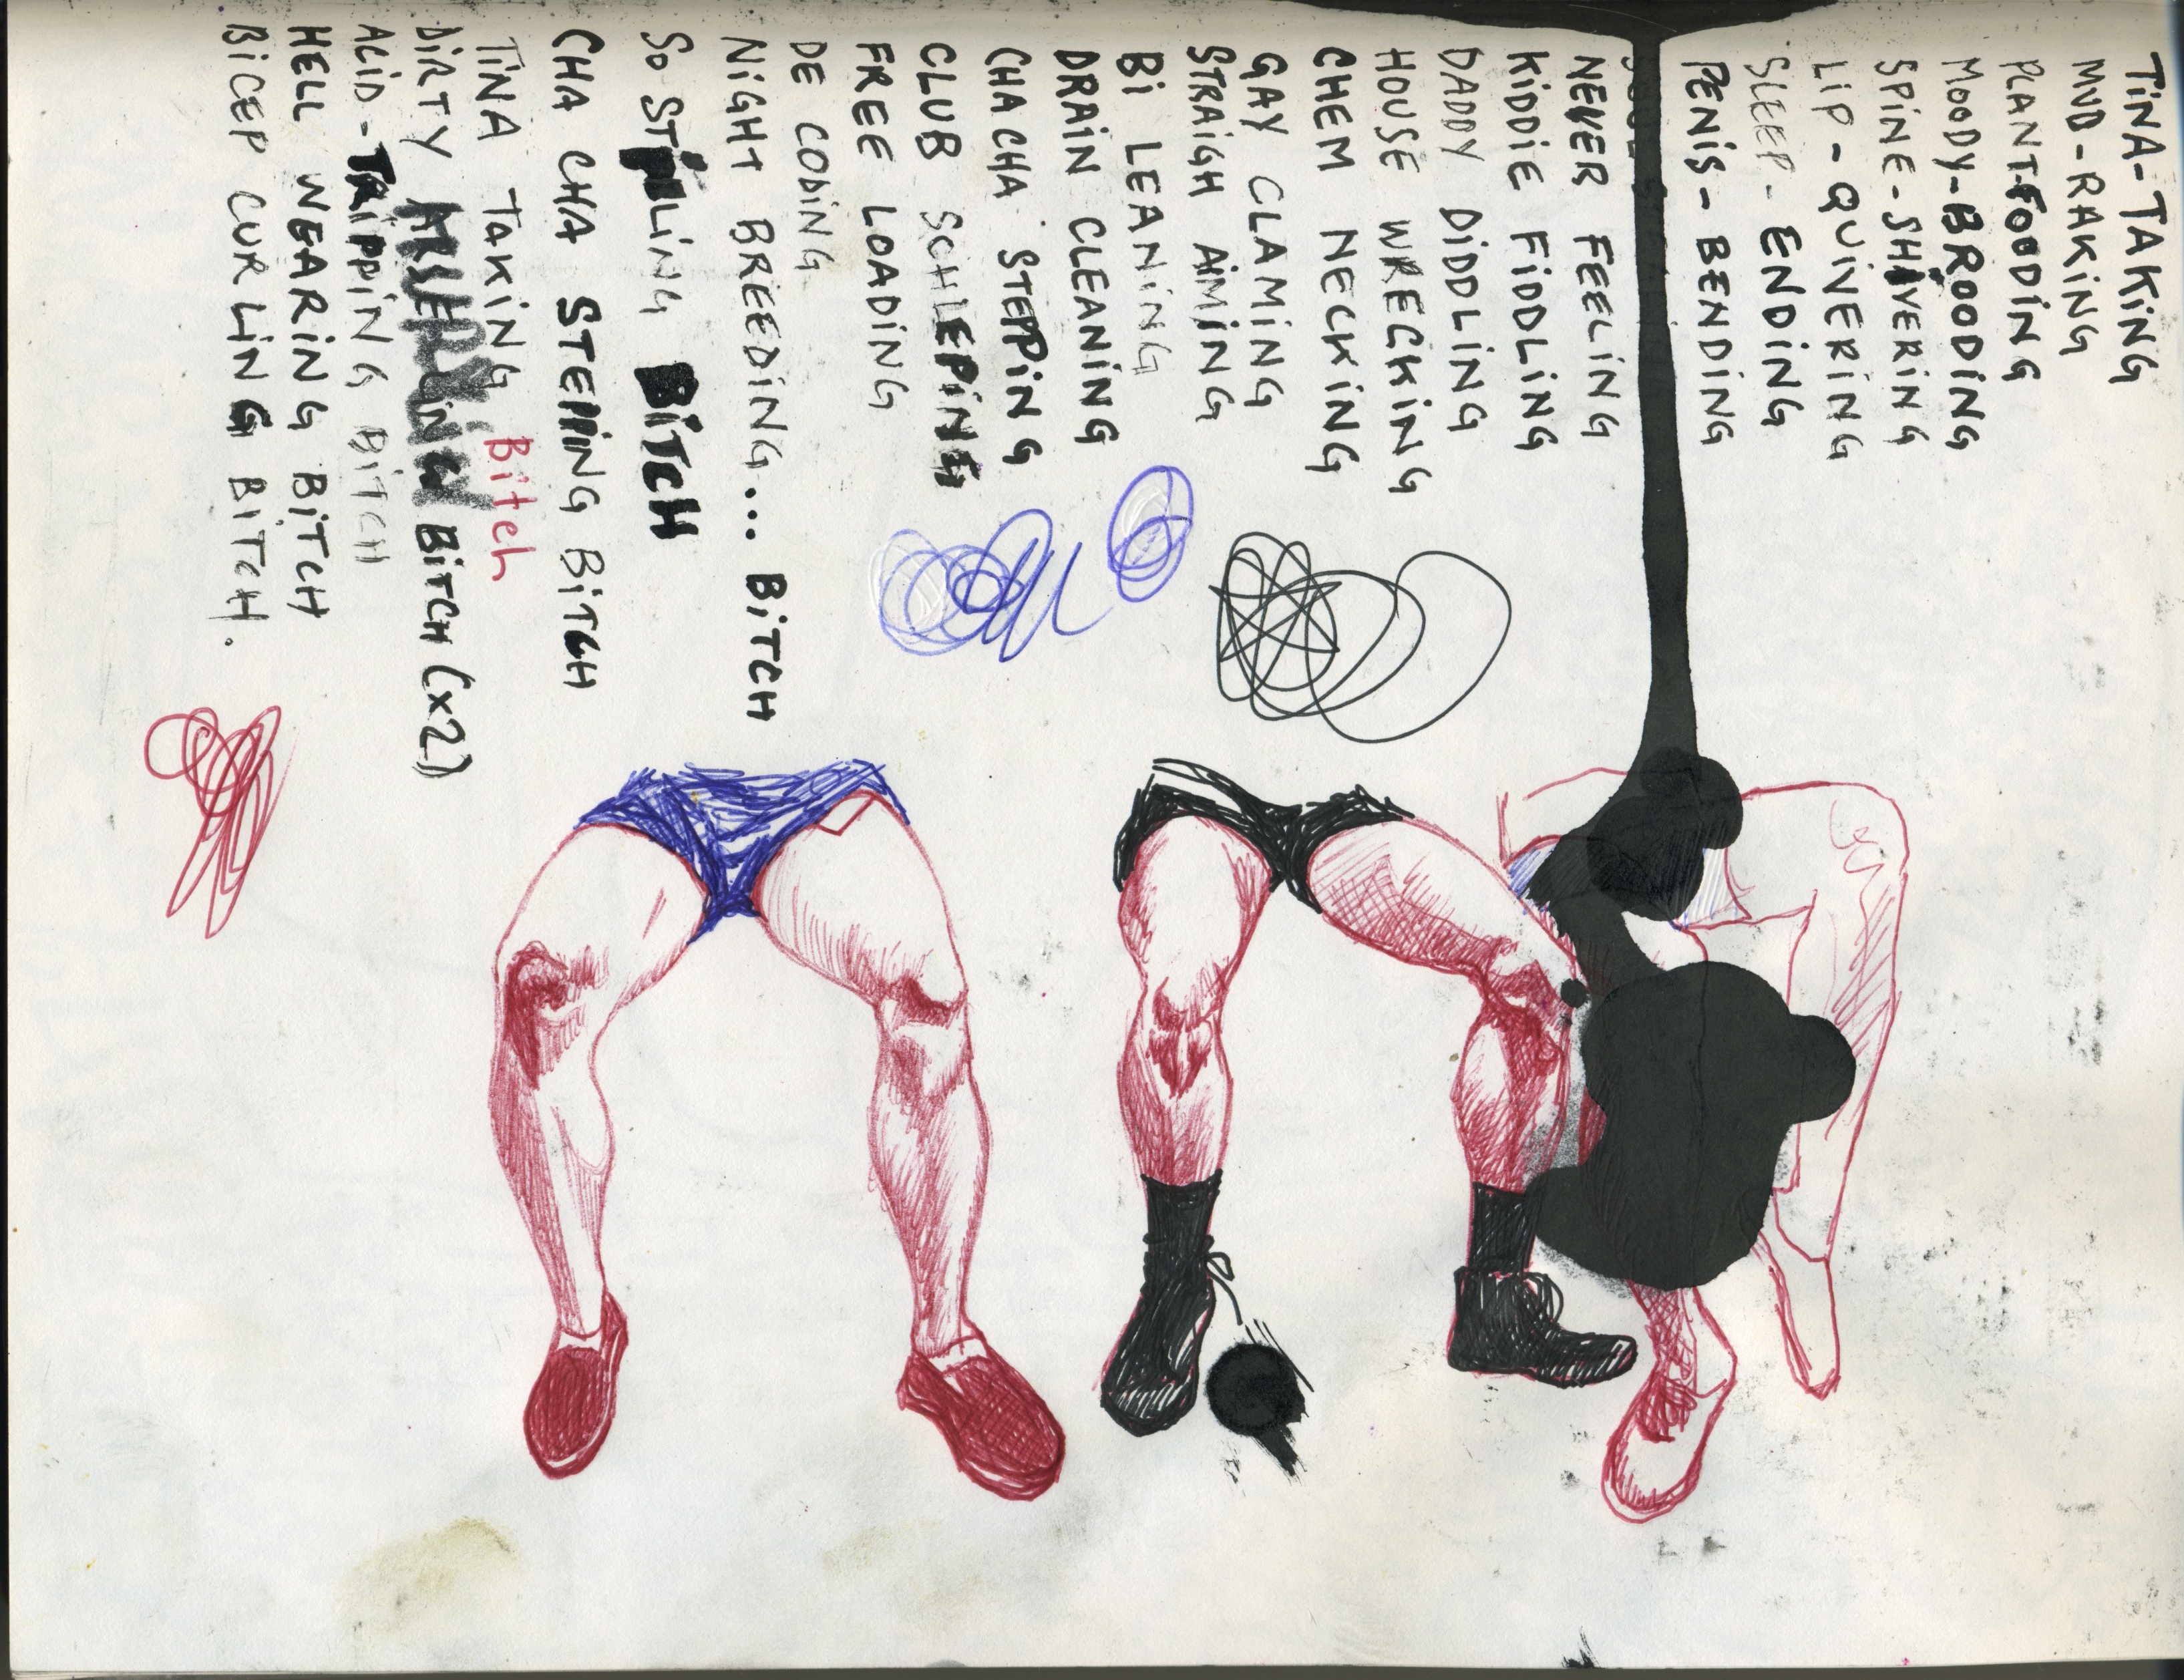 TINA-TAKING
MUD-RAKING
PLANT-FOODING
MOODY-BROODING
SPINE-SHIVERING
LIP-QUIVERING
SLEEP-ENDING
PENIS-BENDING
NEVER FEELING
KIDDIE FIDDLING
DADDY DIDDLING
HOUSE WRECKING
CHEM NECKING
GAY CLAMING
STRAIGH AIMING
BI LEANING
DRAIN CLEANING
CHA CHA STEPPING
CLUB SCHLEPING
FREE LOADING
DE CODING
NIGHT BREEDING... BITCH
SO STALING BITCH
CHA CHA STEPING BITCH
TINA TAKING Bitch
DIRTY BITCH (x2)
ACID-TRIPPING BITCH
HELL WEARING BITCH
BICEP CURLING BITCH.